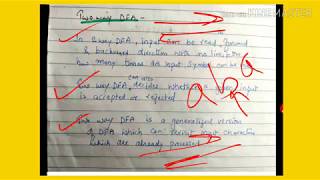 Two way DFA -
In 2 way DFA, input can be read forward
& backward direction with no limit on
how many times an input symbol can be
Two way DFA, decides whether a given input
can also
is accepted or rejected
Two way DFA is a generalized version
of DFA which can revisit input characters
which are already processed
a b a
KINEMASTER